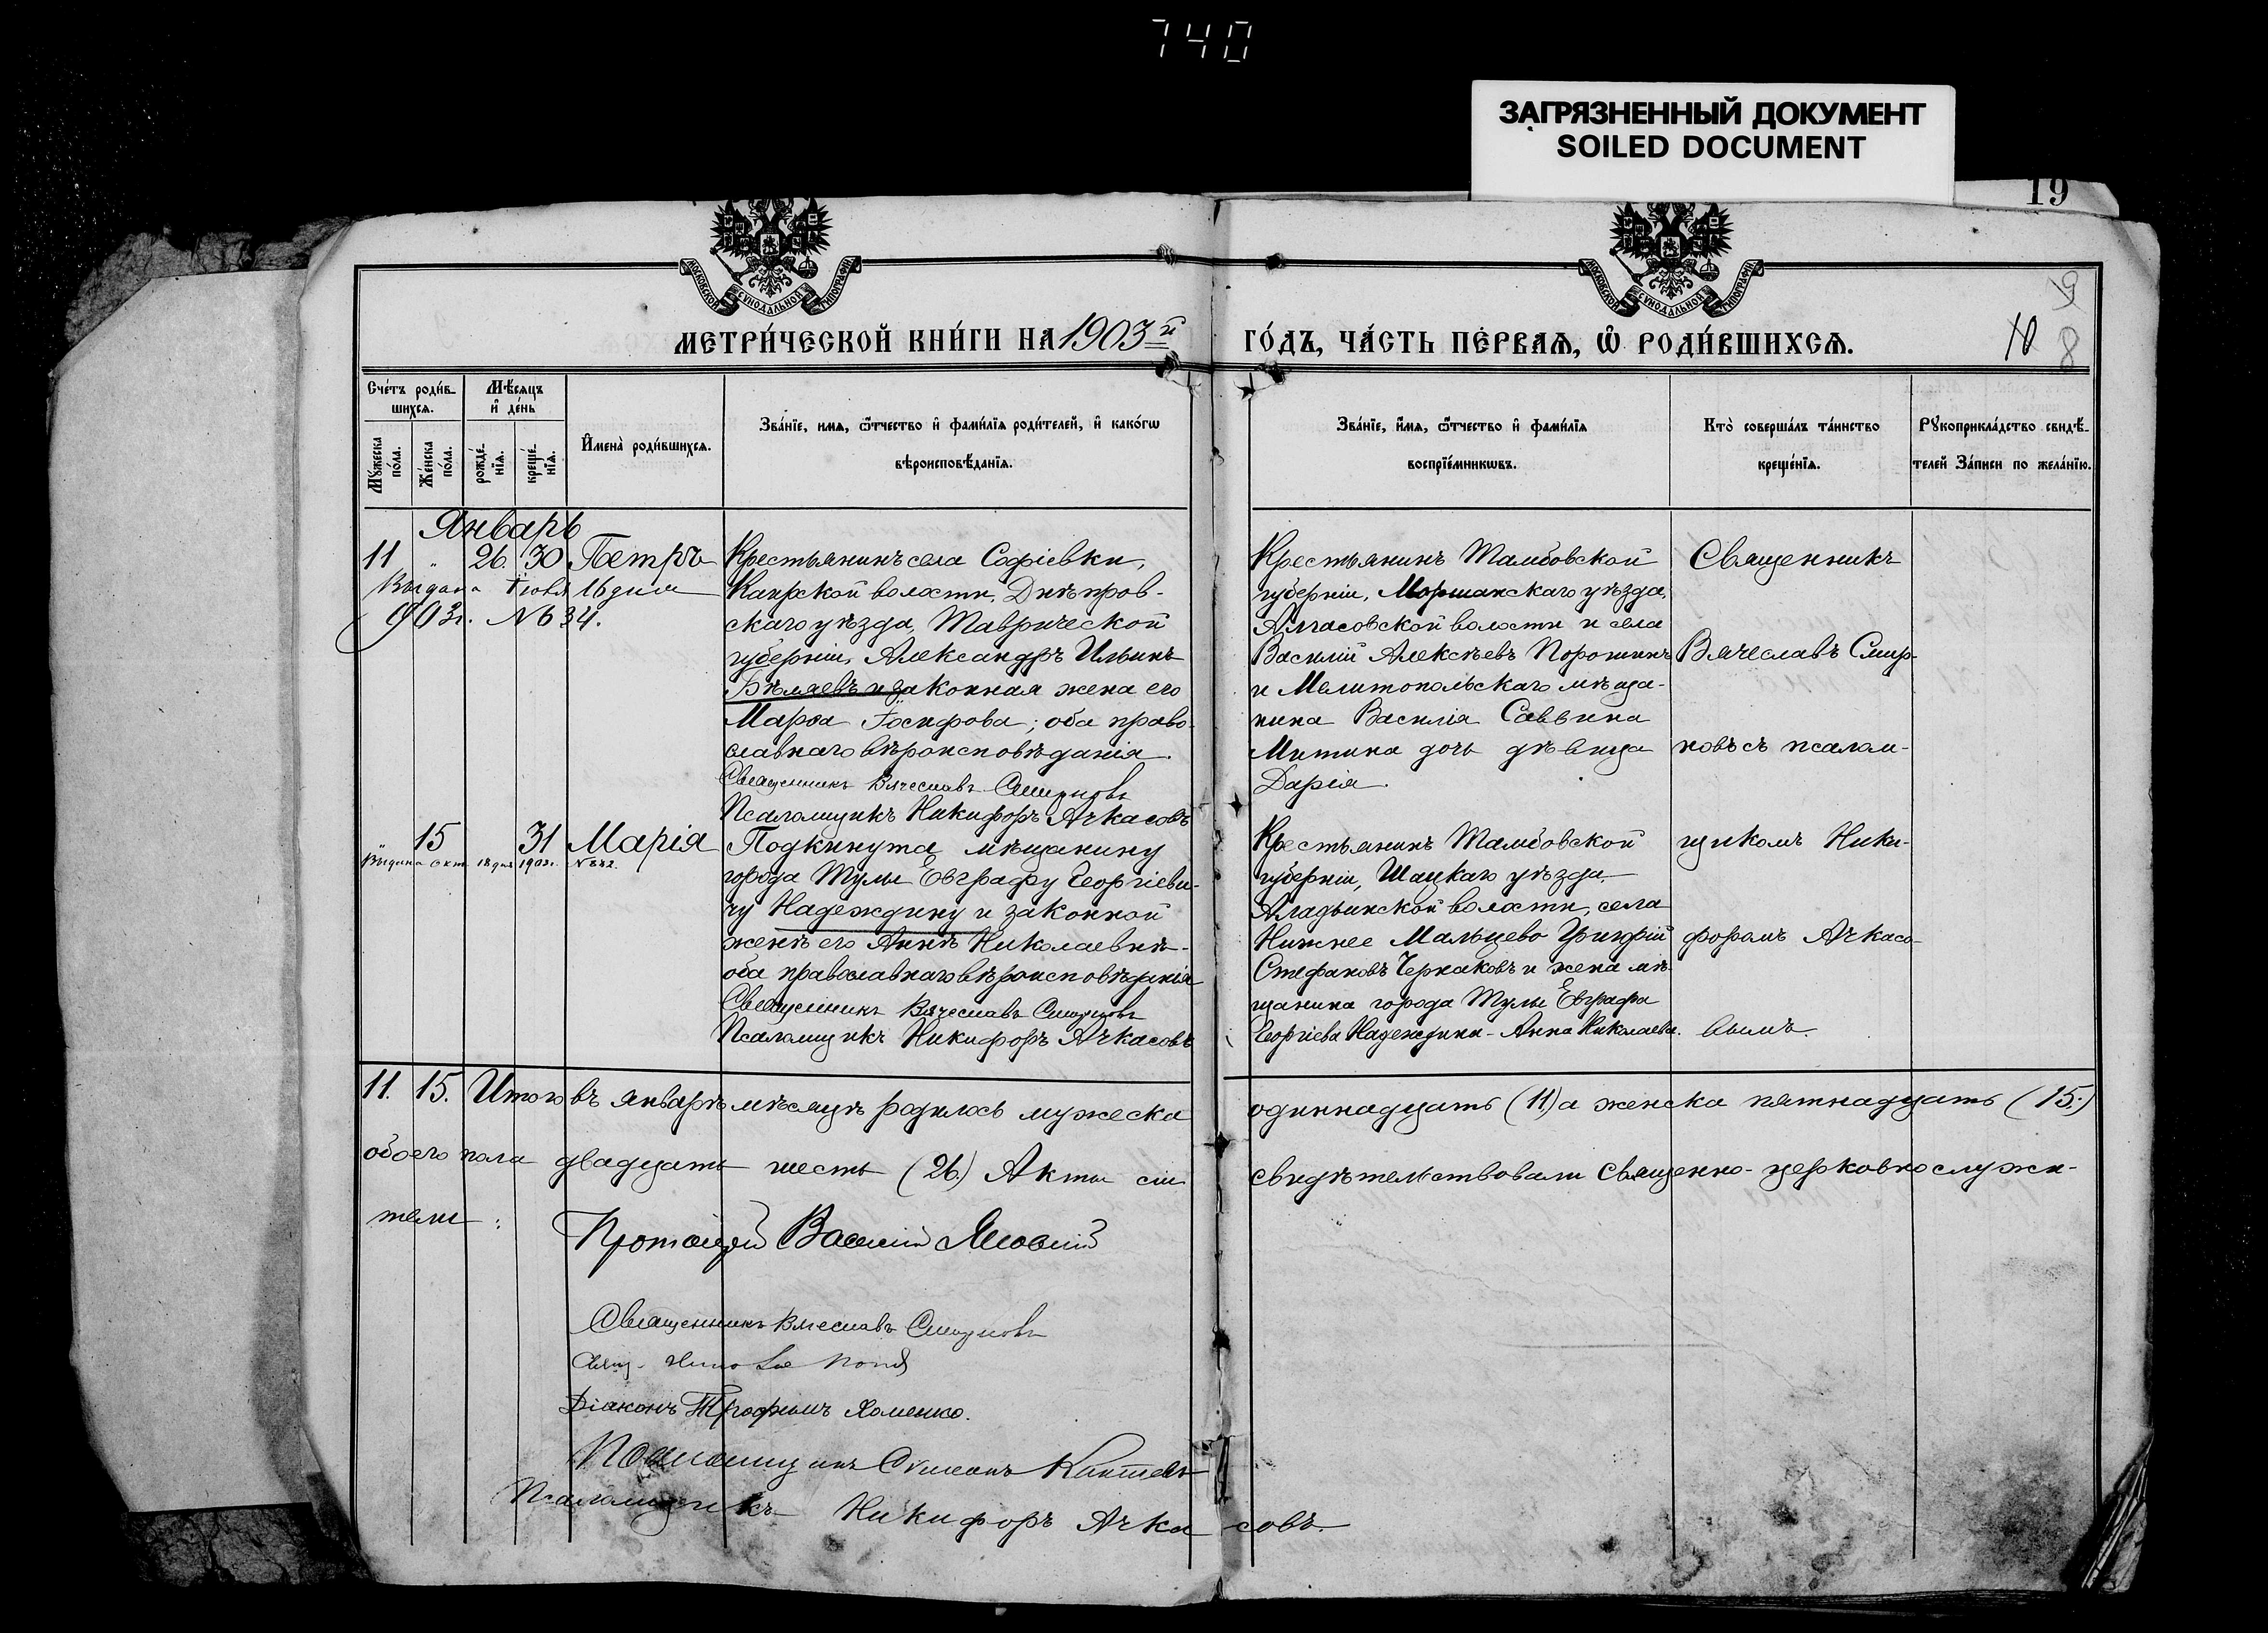 740
ЗАГРЯЗНЕННЫЙ ДОКУМЕНТ
SOILED DOCUMENT
19
МОСКОВСКОЙ СѴНОДАЛЬНОЙ ТИПОГРАФІИ
МОСКОВСКОЙ СѴНОДАЛЬНОЙ ТИПОГРАФІИ
19
МЕТРИ́ЧЕСКОЙ КНИ́ГИ НА 1903й
ГО́ДЪ, ЧА́СТЬ ПЕ́РВАѦ, Ѡ҆ РОДИ́ВШИХСѦ.
10 8
Сче́тъ роди́в-
шихсѧ.
Мѣ́сѧцъ
и҆ де́нь
Мꙋжеска по́ла.
Же́нска по́ла.
рожде́-нїѧ.
креще́-нїѧ.
И҆мена̀ роди́вшихсѧ.
Зва́нїе, имѧ, ѻ҆́тчество и҆ фами́лїѧ роди́телей, и҆ како́гѡ
вѣроисповѣ́данїѧ.
Зва́нїе, и҆́мѧ, ѻ҆́тчество и҆ фами́лїѧ
воспрїе́мникѡвъ.
Кто̀ соверша́лъ та́инство
креще́нїѧ.
Рꙋкоприкла́дство свидѣ́-
телей За́писи по жела́нїю.
Январь
11 " 26. 30 Петръ
Выдана Іюля 16 дня
903г. №634.
Крестьянинъ села Софіевки,
Каирской волости, Днѣпров-
скаго уѣзда, Таврической
губерніи, Александръ Ильинъ
Бѣляевъ и законная жена его
Марѳа Іосифова; оба право-
славнаго вѣроисповѣданія.
Священникъ Вячеславъ Смирновъ
Псаломщикъ Никифоръ Ачкасовъ
Крестьянинъ Тамбовской
губерніи, Моршанскаго уѣзда,
Алгасовской волости и села
Василій Алексѣевъ Порошинъ
и Мелитопольскаго мѣща-
нина Василія Саввина
Митина дочь дѣвица
Дарія.
Священникъ
Вячеславъ Смир-
новъ съ псалом-
" 15 31 Марія
Выдана Окт. 18 дня 1903г.
Подкинута мѣщанину
города Тулы Евграфу Георгіеви-
чу Надеждину и законной
женѣ его Аннѣ Николаевнѣ-
оба православнаго вѣроисповѣданія
Священникъ Вячеславъ Смирновъ
Псаломщикъ Никифоръ Ачкасовъ
Крестьянинъ Тамбовской
губерніи, Шацкаго уѣзда,
Аладьинской волости, села
Нижнее Мальцево Григорій
Стефановъ Чернаковъ и жена мѣ-
щанина города Тулы Евграфа
Георгіева Надеждина - Анна Николаева.
щикомъ Ники-
форомъ Ачкасо-
вымъ.
11. 15. Итого въ январѣ мѣсяцѣ родилось мужеска
одиннадцать (11) а женска пятнадцать (15.)
обоего пола двадцать шесть (26.) Акты сіи
свидѣтельствовали священно-церковнослужи-
тели:
Протоіерей Василій
Священникъ Вячеславъ Смирновъ
Свящ. Попов
Діаконъ Трофимъ Хоменко.
Псаломщикъ Симеонъ
Псаломщикъ Никифоръ Ачкасовъ.